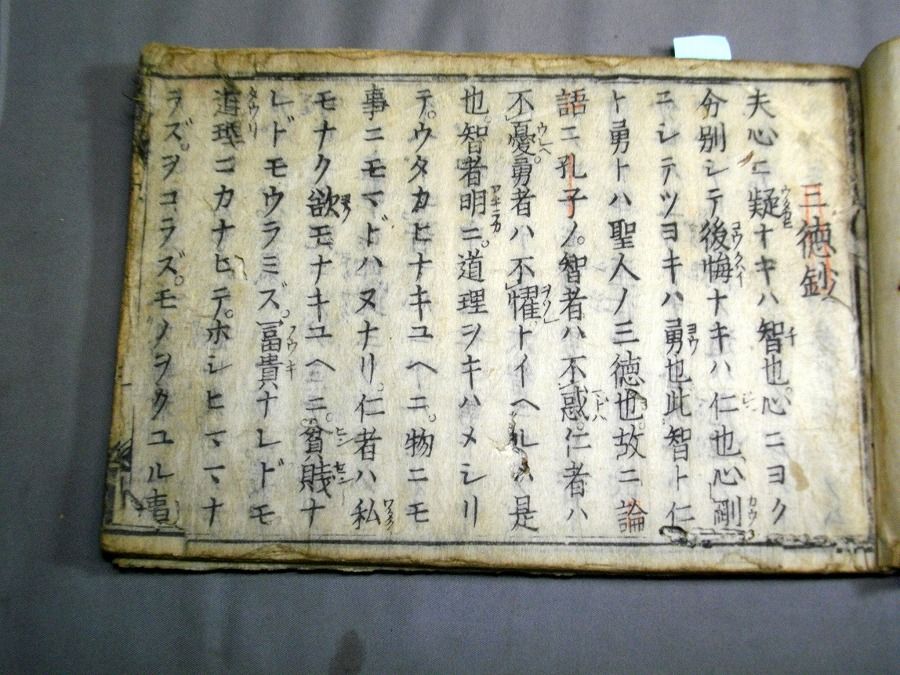 三徳鈔
夫心ニ疑ナキハ智也。心ニヨク
分別シテ後悔ナキハ仁也。心剛
ニシテツヨキハ勇也此智ト仁
ト勇トハ聖人ノ三徳也。故ニ論
語ニ孔子ノ。智者ハ不惑。仁者ハ
不憂。勇者ハ不懼トイヘルハ是
也。智者明ニ。道理ヲキハメシリ
テ。ウタカヒナキユヘニ。物ニモ
事ニモマドハヌナリ。仁者ハ私
モナク欲モナキユヘニ。貧賎ナ
レドモウラミズ。冨貴ナレドモ
道理ニカナヒテ。ホシヒマヽナ
ラズ。ヲコラズ。モノヲクユル事